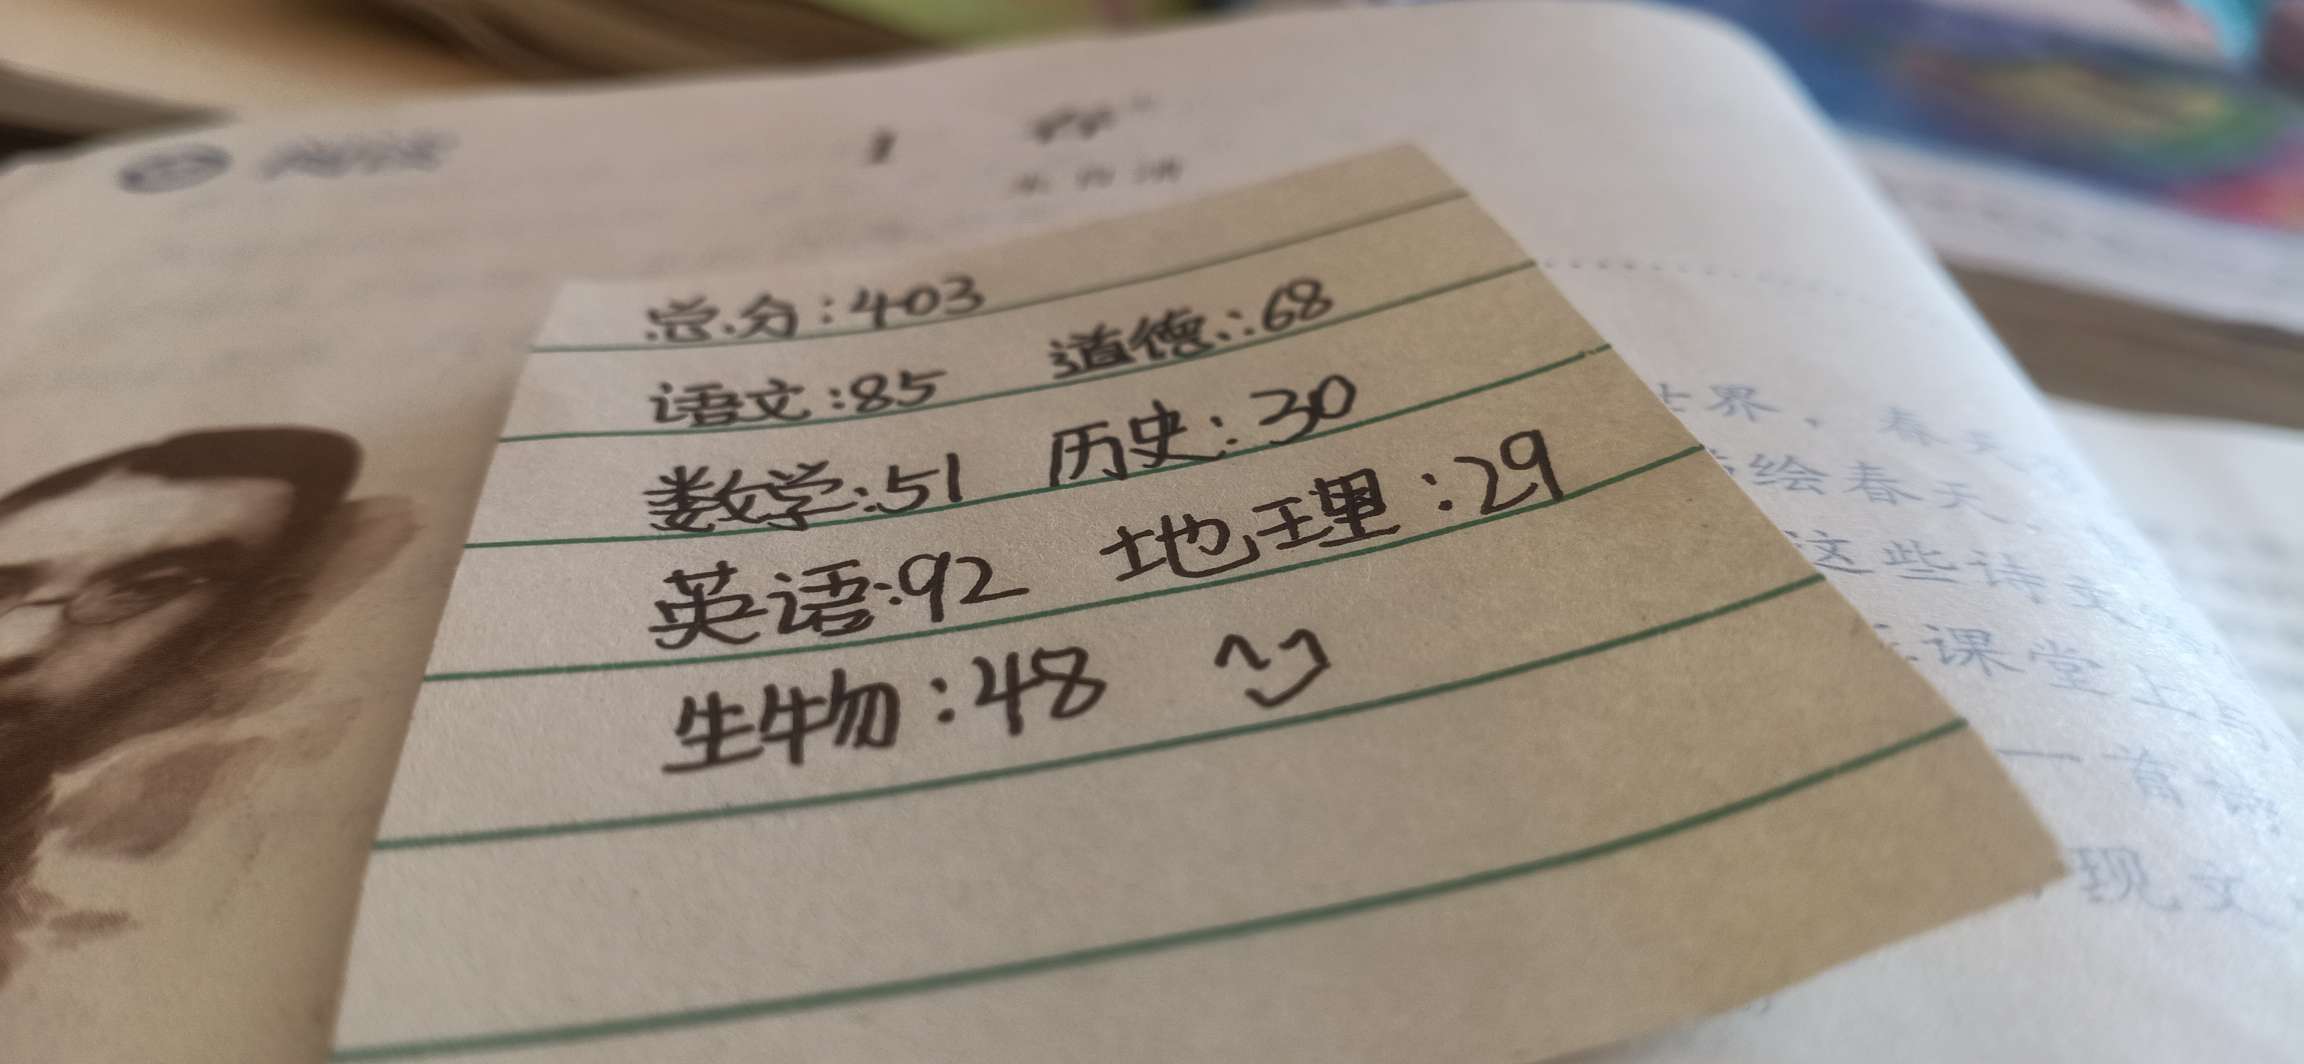 总分:403
语文:85 道德:68
数学:51 历史:30
英语:92 地理:29
生物:48
界,春天
绘春天
这些诗文
课堂上
一首
现文